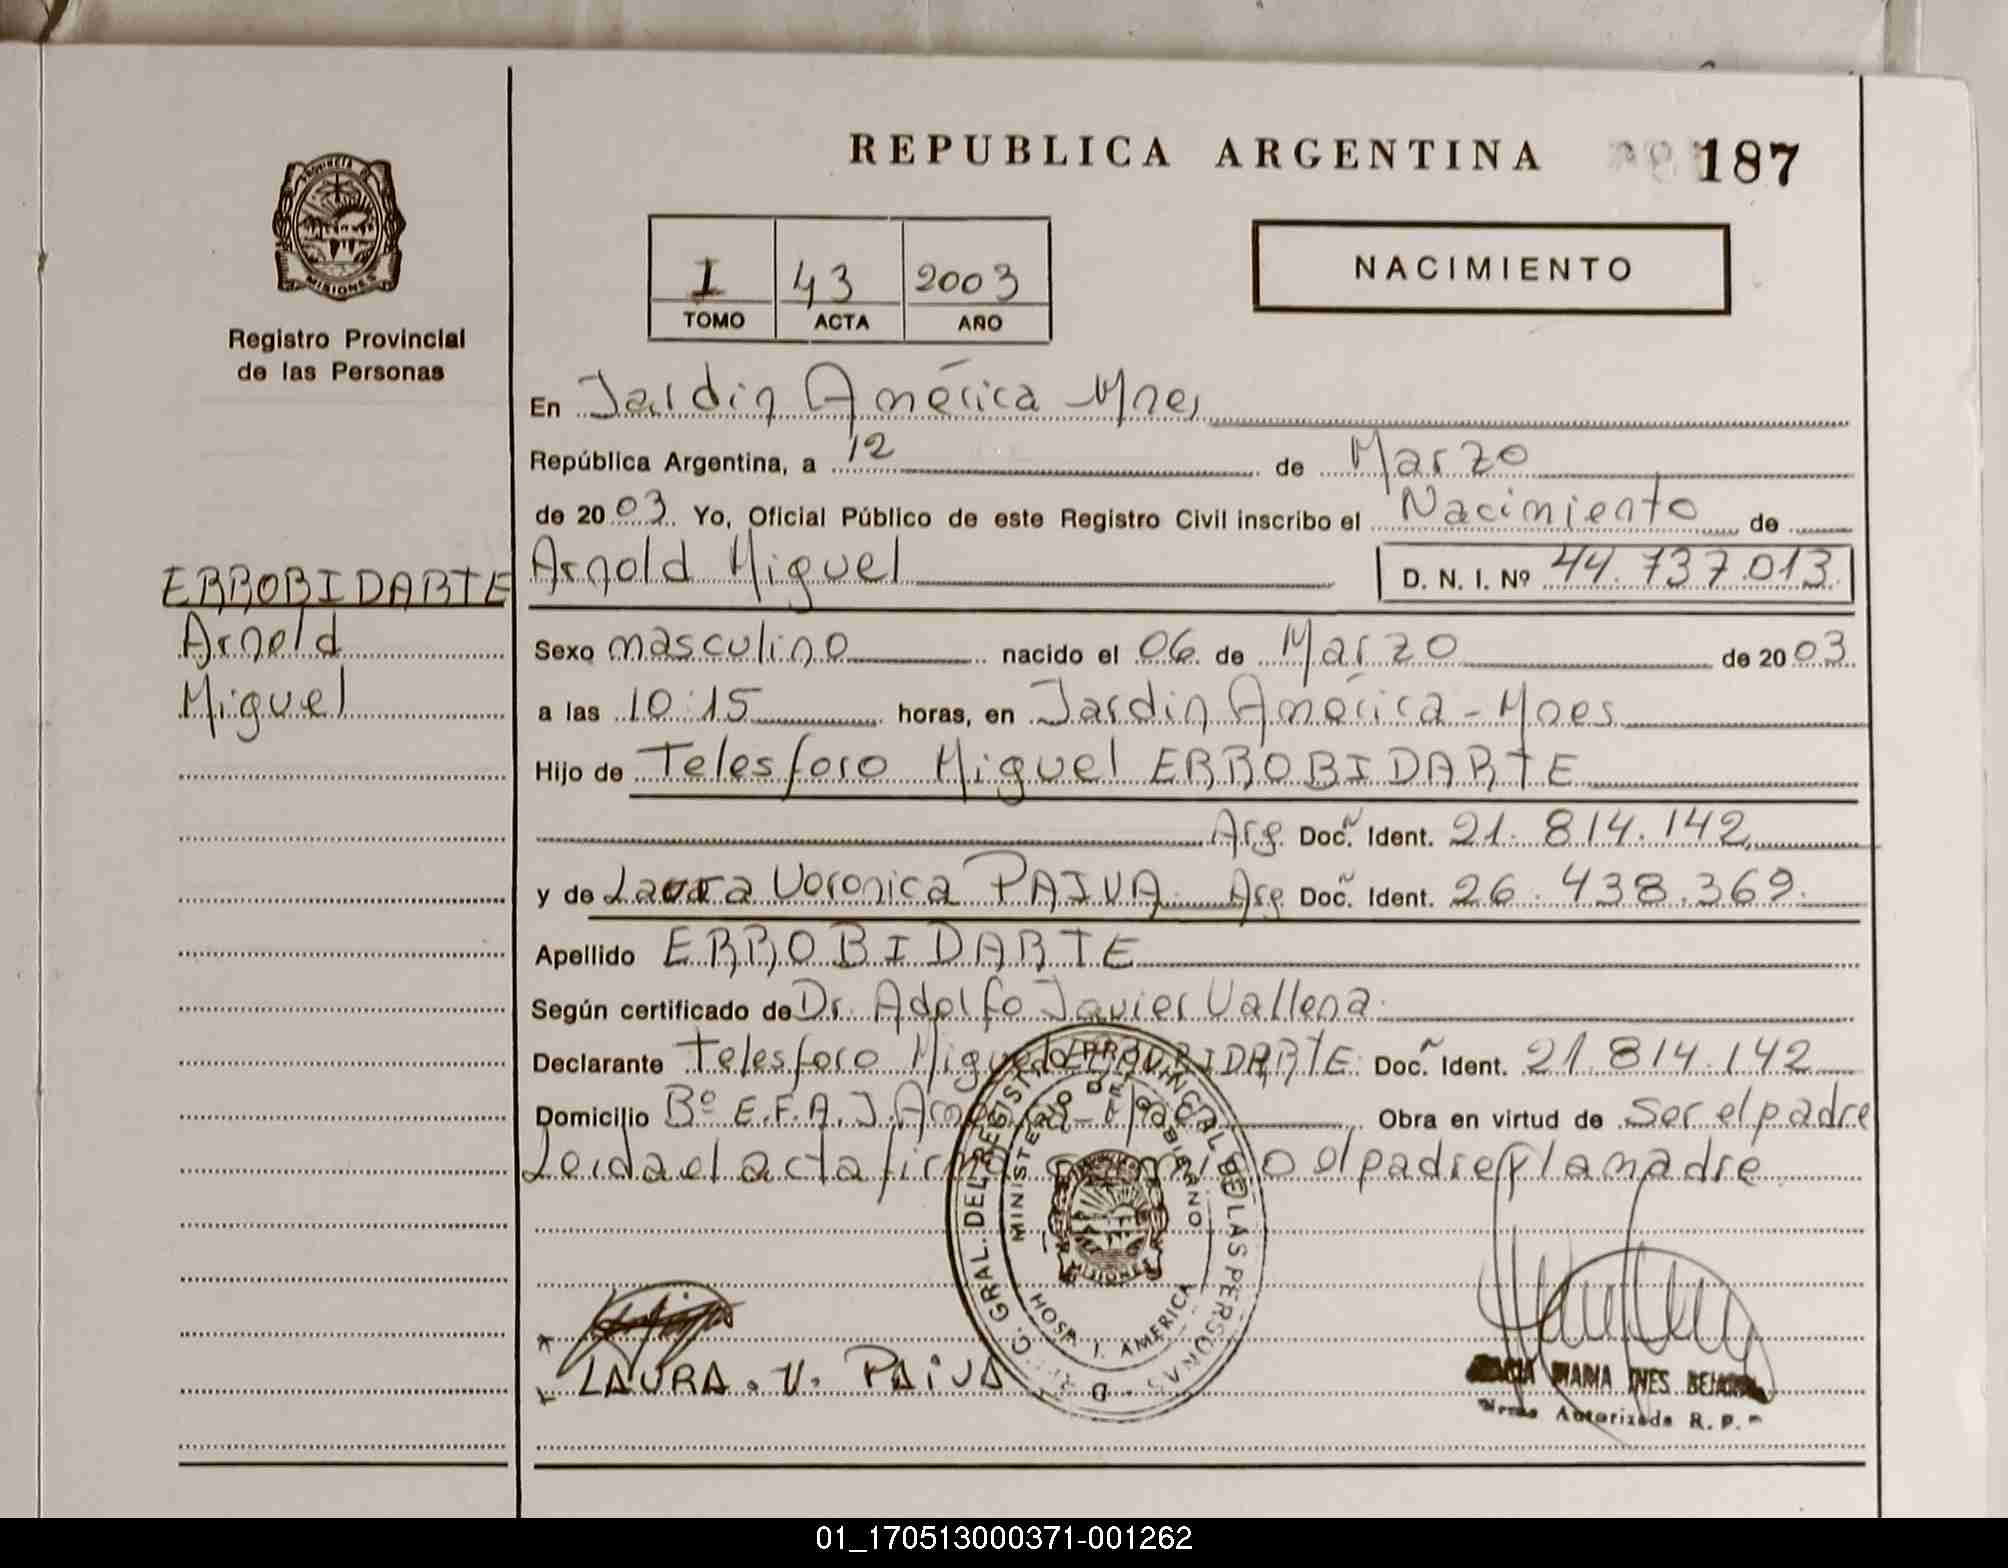 REPUBLICA ARGENTINA
187
PROVINCIA
MISIONES
Registro Provincial
de las Personas
I 43 2003
TOMO ACTA AÑO
NACIMIENTO
En Jardin América Mnes
República Argentina, a 12 de Marzo
de 2003 Yo, Oficial Público de este Registro Civil inscribo el Nacimiento de
ERROBIDARTE
Arnold
Miguel
Arnold Miguel D. N. I. Nº 44.737.013
Sexo masculino nacido el 06 de Marzo de 2003
a las 10:15 horas, en Jardin América - Mnes
Hijo de Telesforo Miguel ERROBIDARTE
Arg. Docº. Ident. 21.814.142
y de Laura Veronica PAIVA Arg Docº. Ident. 26.438.369.
Apellido ERROBIDARTE
Según certificado de Dr. Adolfo Javier Vallena
Declarante Telesforo Miguel ERROBIDARTE Docº. Ident. 21.814.142
Domicilio Bº E.F.A. J. Obra en virtud de Ser el padre
Leida el acta el padre y la madre
C. GRAL. DEL REGISTRO PROVINCIAL DE LAS PERSONAS
MINISTERIO DE GOBIERNO
MISIONES
HOSP. J. AMERICA
LAURA. V. PAIVA
MARIA INES
Autorizada R. P.
01_170513000371-001262